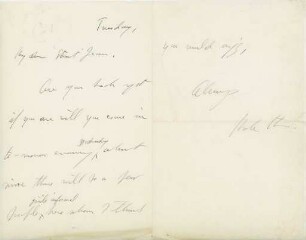 Tuesday,
My dear Aunt Jean.
Are you back yet
if you are will you come in
Wednesday
to-morrow evening, about
nine there will be a few
quite informal
people, whom I think
you would enjoy,
Always